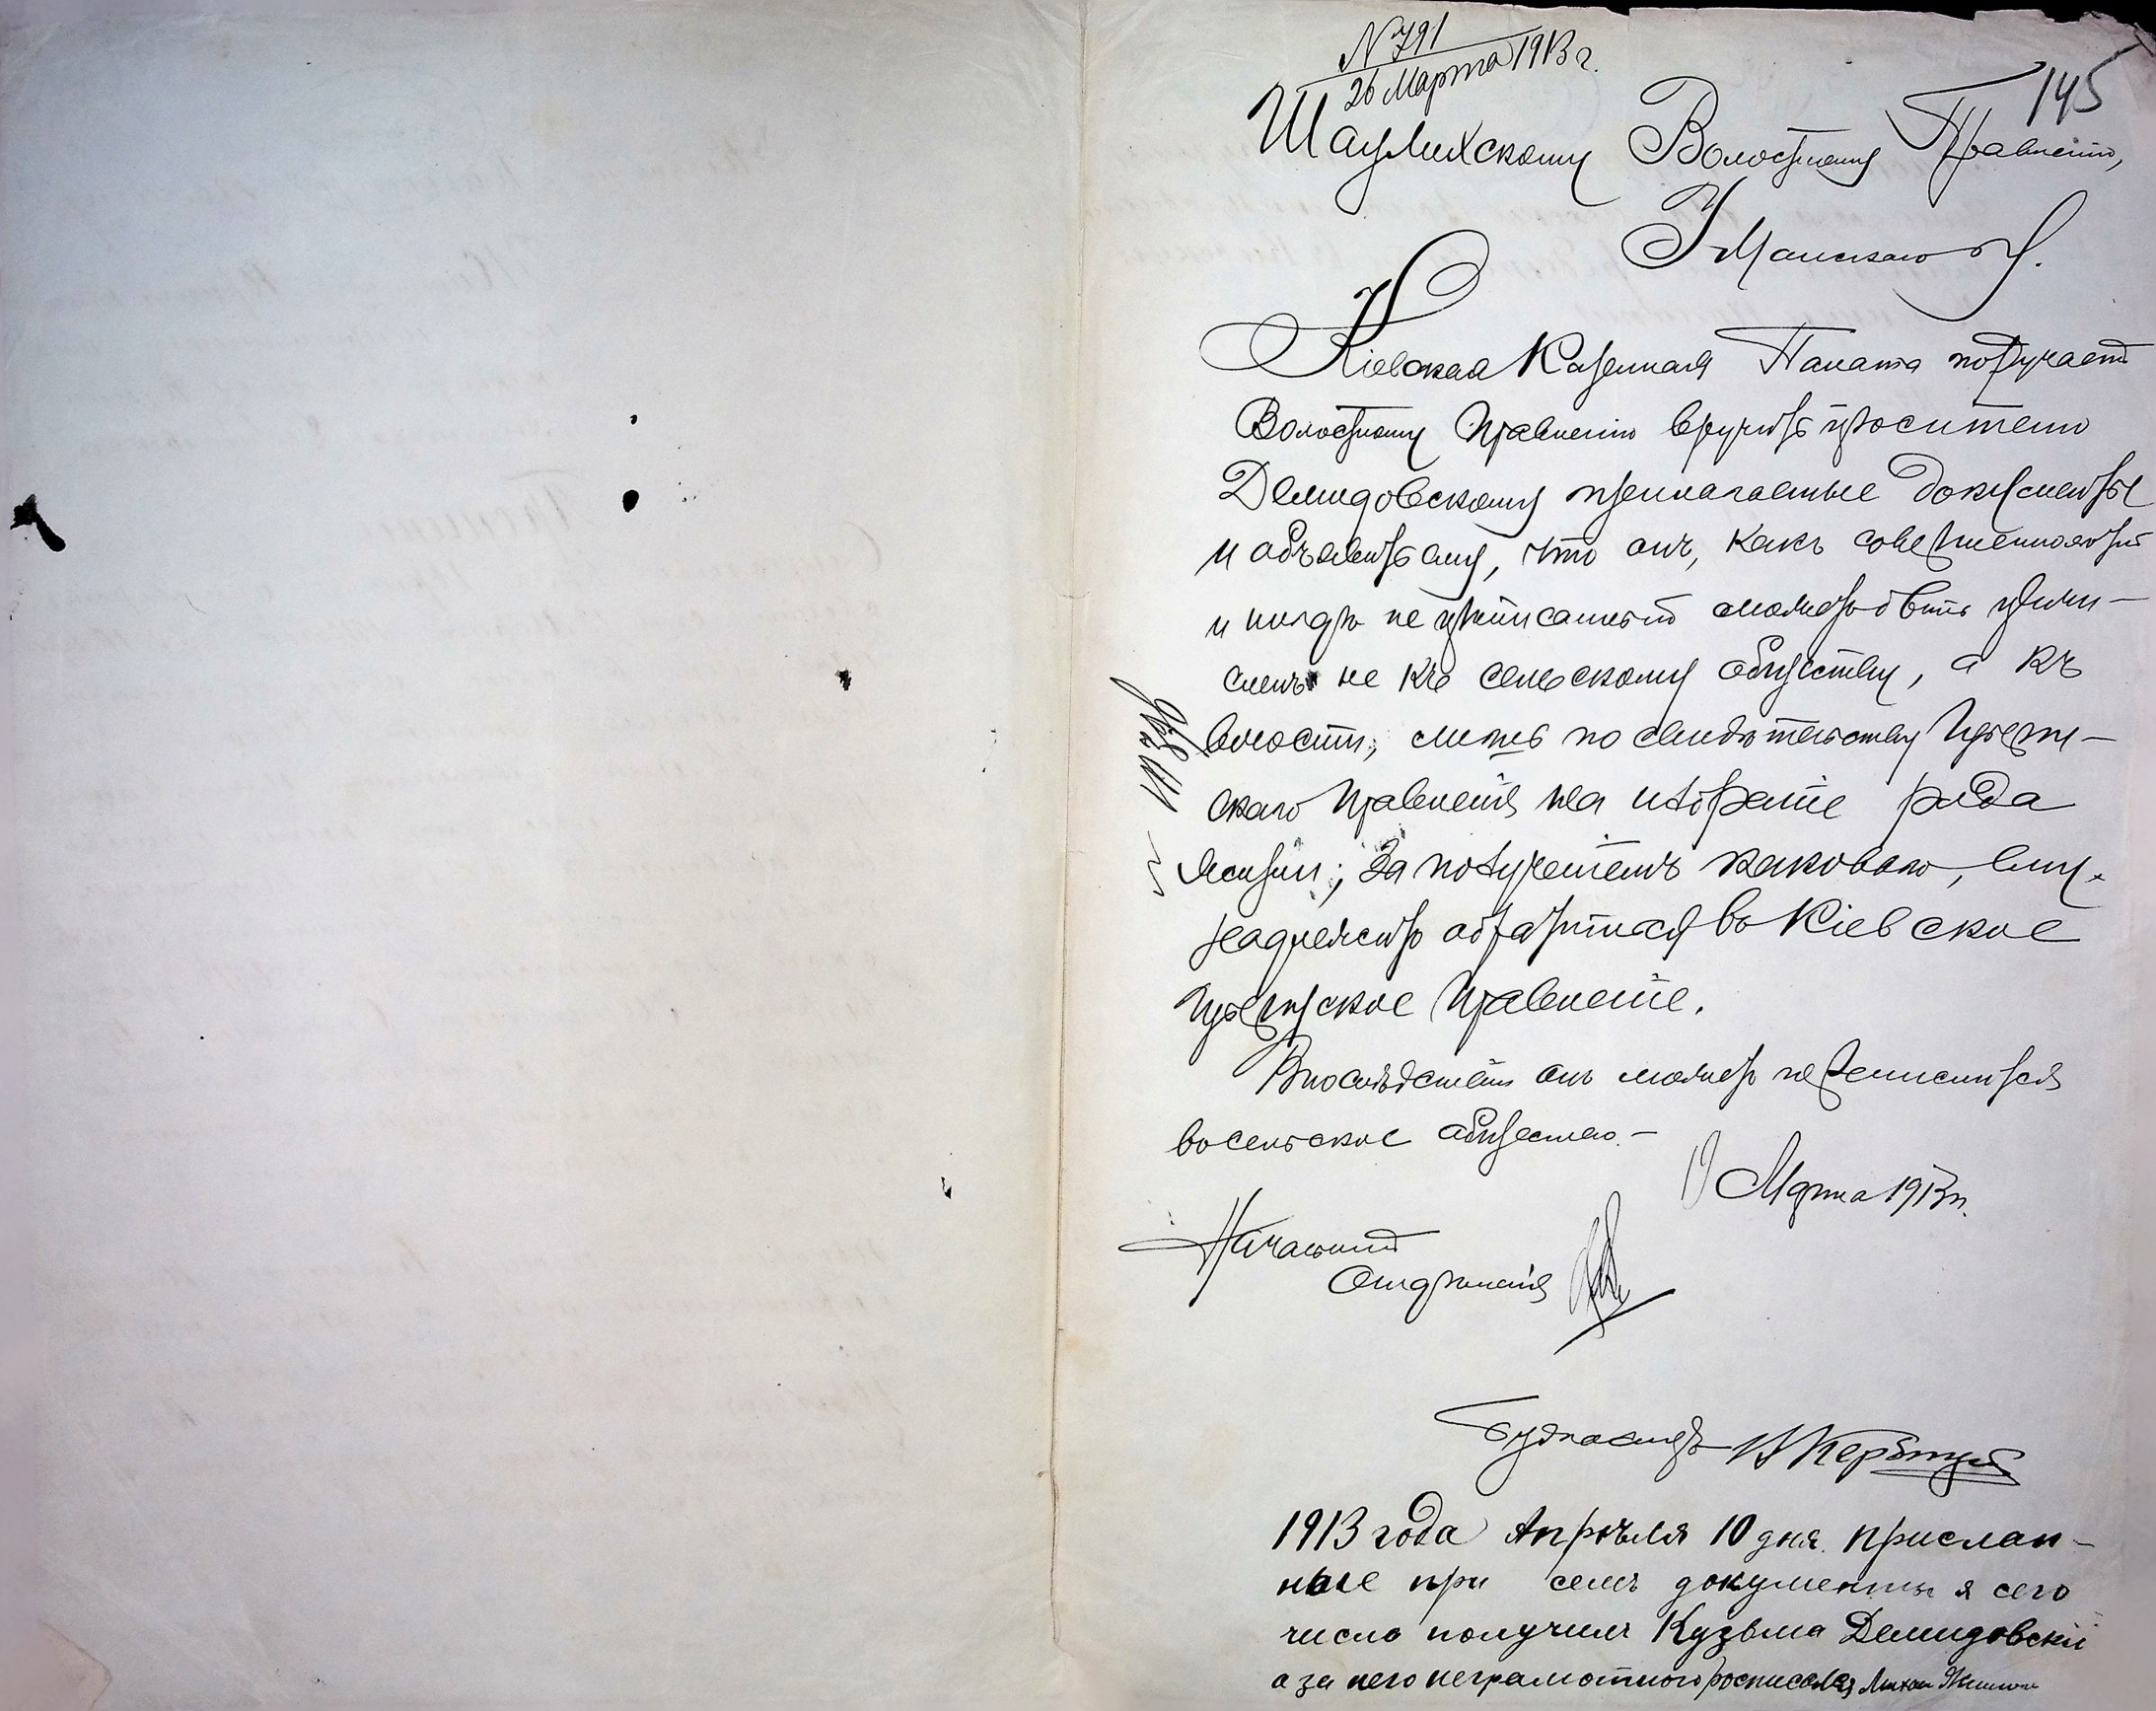 N 791
26 Марта 1913 г.
145
Шаулихскому Волостному Правленію,
Уманскаго у.
Кіевская Казенная Палата поручаетъ
Волостному Правленію вручить просителю
Демидовскому прилагаемые документы
и объявить ему, что онъ, какъ совершеннолѣтній
и нигдѣ не приписанный можетъ быть причи-
сленъ не къ сельскому обществу, а къ
волости, лишь по свидѣтельству Губерн-
скаго Правленія на избраніе рода
жизни; за полученіемъ каковаго, ему
надлежитъ обратиться въ Кіевское
Губернское Правленіе.
Впослѣдствіи онъ можетъ переписаться
въ сельское общество.-
Марта 1913 г.
Начальникъ
Отдѣленія
1913 года Апрѣля 10 дня. Прислан-
ные при семъ документы я сего
числа получилъ Кузьма Демидовскій
а за него неграмотнаго росписался